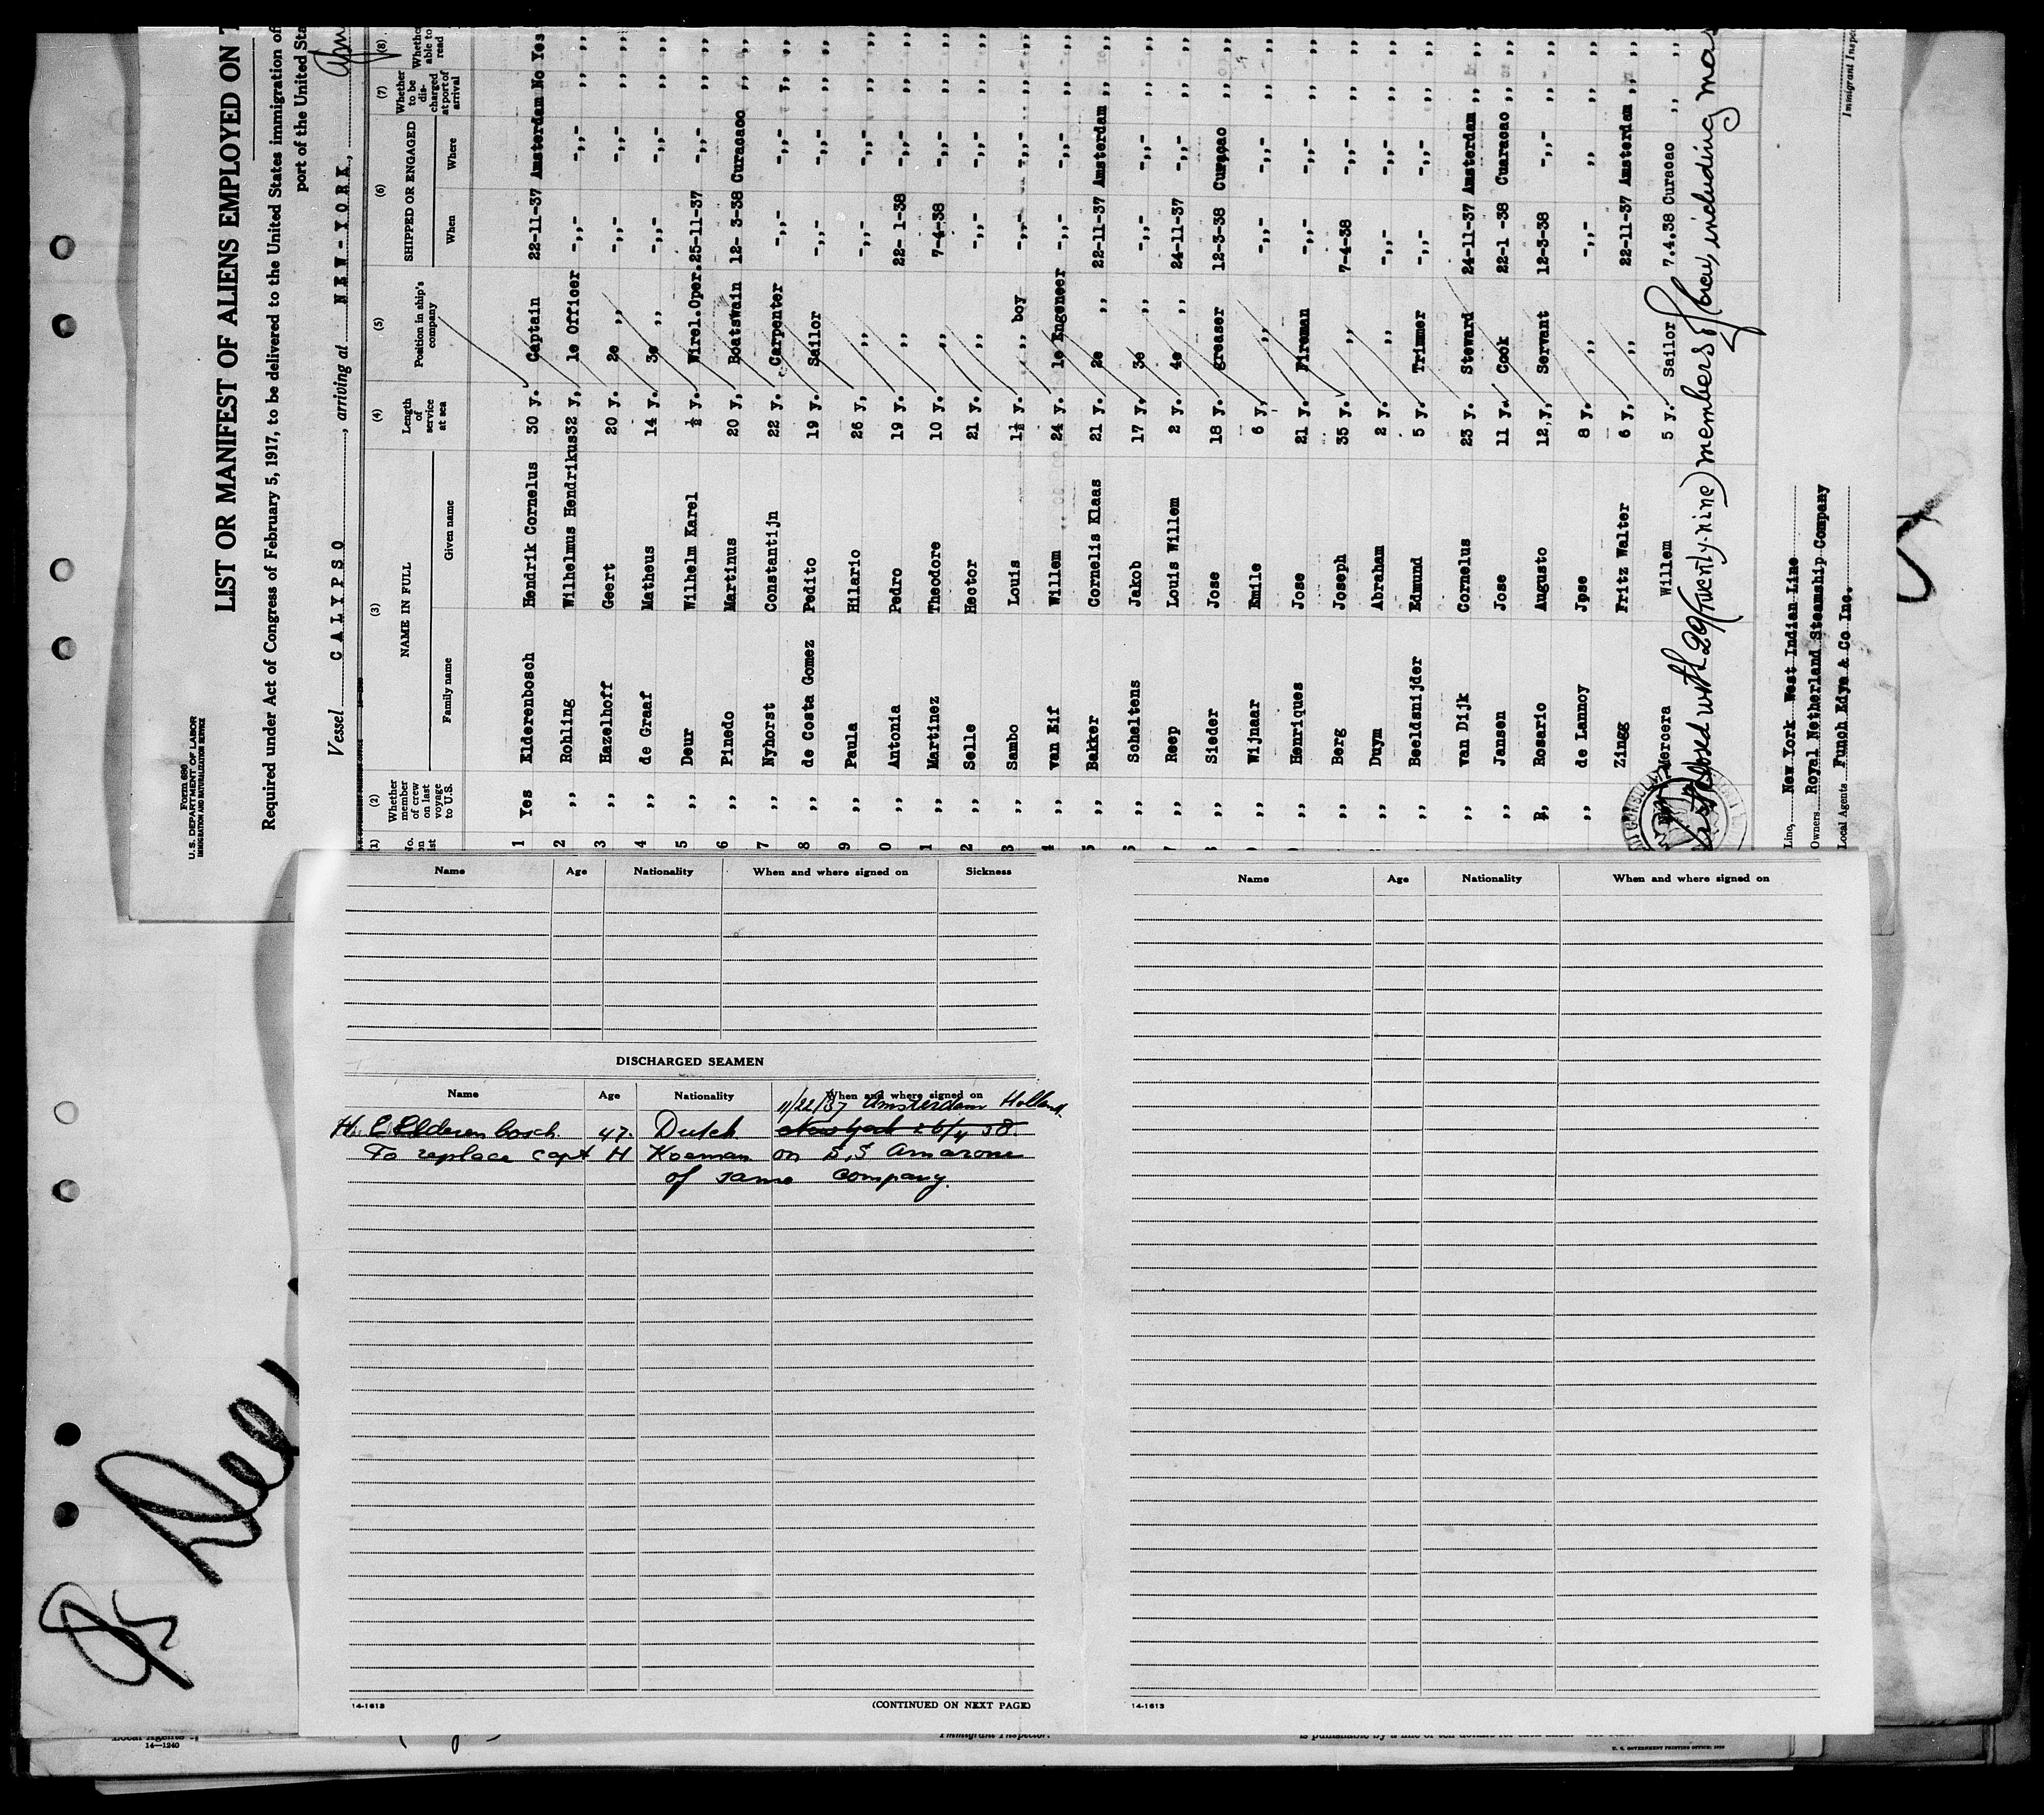 Form 680
U.S. DEPARTMENT OF LABOR
IMMIGRATION AND NATURALIZATION SERVICE
LIST OR MANIFEST OF ALIENS EMPLOYED ON
Required under Act of Congress of February 5, 1917, to be delivered to the United States immigration of
port of the United Sta
Vessel CALYPSO, arriving at NEW-YORK,
(1) (2) (3) (4) (5) (6) (7) (8)
No. on list Whether member of crew on last voyage to U.S. NAME IN FULL Family name Given name Length of service at sea Position in ship's company SHIPPED OR ENGAGED When Where Whether to be discharged at port of arrival Whether able to read
1 Yes Elderenbosch Hendrik Cornelus 30 y. Captain 22-11-37 Amsterdam No Yes
2 ,, Rohling Wilhelmus Hendrikus 32 y, 1e Officer -,,- -,,- ,, ,,
3 ,, Hazelhoff Geert 20 y. 2e ,, -,,- -,,- ,, ,,
4 ,, de Graaf Matheus 14 y. 3e ,, -,,- -,,- ,, ,,
5 ,, Deur Wilhelm Karel ½ y. Wirel.Oper. 25-11-37 -,,- ,, ,,
6 ,, Pinedo Martinus 20 y, Boatswain 12- 3-38 Curacaoo ,, ,,
7 ,, Nyhorst Constantijn 22 y. Carpenter -,,- -,,- ,, ,,
8 ,, de Costa Gomez Pedito 19 y. Sailor -,,- -,,- ,, ,,
9 ,, Paula Hilario 26 y, ,, -,,- -,,- ,, ,,
0 ,, Antonia Pedro 19 y. ,, 22- 1-38 -,,- ,, ,,
1 ,, Martinez Theodore 10 y. ,, 7-4-38 -,,- ,, ,,
2 ,, Selle Hector 21 y. ,, -,,- -,,- ,, ,,
3 ,, Sambo Louis 1½ y. ,, boy -,,- -,,- ,, ,,
4 ,, van Eif Willem 24 y. 1e Engeneer -,,- -,,- ,, ,,
5 ,, Bakker Cornelis Klaas 21 y. 2e ,, 22-11-37 Amsterdam ,, ,,
6 ,, Scheltens Jakob 17 y. 3e ,, -,,- -,,- ,, ,,
7 ,, Reep Louis Willem 2 y. 4e ,, 24-11-37 -,,- ,, ,,
8 ,, Sieder Jose 18 y. greaser 12-3-38 Curaçao ,, ,,
,, Wijnaar Emile 6 y, ,, -,,- -,,- ,, ,,
,, Henriques Jose 21 y. Fireman -,,- -,,- ,, ,,
,, Berg Joseph 35 y. ,, 7-4-38 -,,- ,, ,,
,, Duym Abraham 2 y. ,, -,,- -,,- ,, ,,
,, Beeldsnijder Edmund 5 y. Trimmer -,,- -,,- ,, ,,
,, van Dijk Cornelus 23 y. Steward 24-11-37 Amsterdam ,, ,,
,, Jansen Jose 11 y. Cook 22-1 -38 Cuaracao ,, ,,
,, Rosario Augusto 12,y, Servant 12-3-38 -,,- ,, ,,
,, de Lannoy Jose 8 y. ,, -,,- ,, ,, ,,
Zingg Fritz Walter 6 y, ,, 22-11-37 Amsterdam ,, ,,
Mercera Willem 5 y. Sailor 7.4.38 Curacao ,, ,,
with 29 (Twenty-nine) members of crew, including mas
Line, New York West Indian Line
Owners Royal Netherland Steamship Company
Local Agents Funch Edye & Co Inc.
Immigrant Inspec
Name Age Nationality When and where signed on Sickness
DISCHARGED SEAMEN
Name Age Nationality When and where signed on
11/22/37 Amsterdam Holland
H. C Elderenbosch 47. Dutch New York 26/4 38.
To replace capt H Koeman on S.S Amarone
of same company.
14-1613
(CONTINUED ON NEXT PAGE)
Name Age Nationality When and where signed on
14-1613
Local Agents
14—1240
Immigrant Inspector.
U. S. GOVERNMENT PRINTING OFFICE